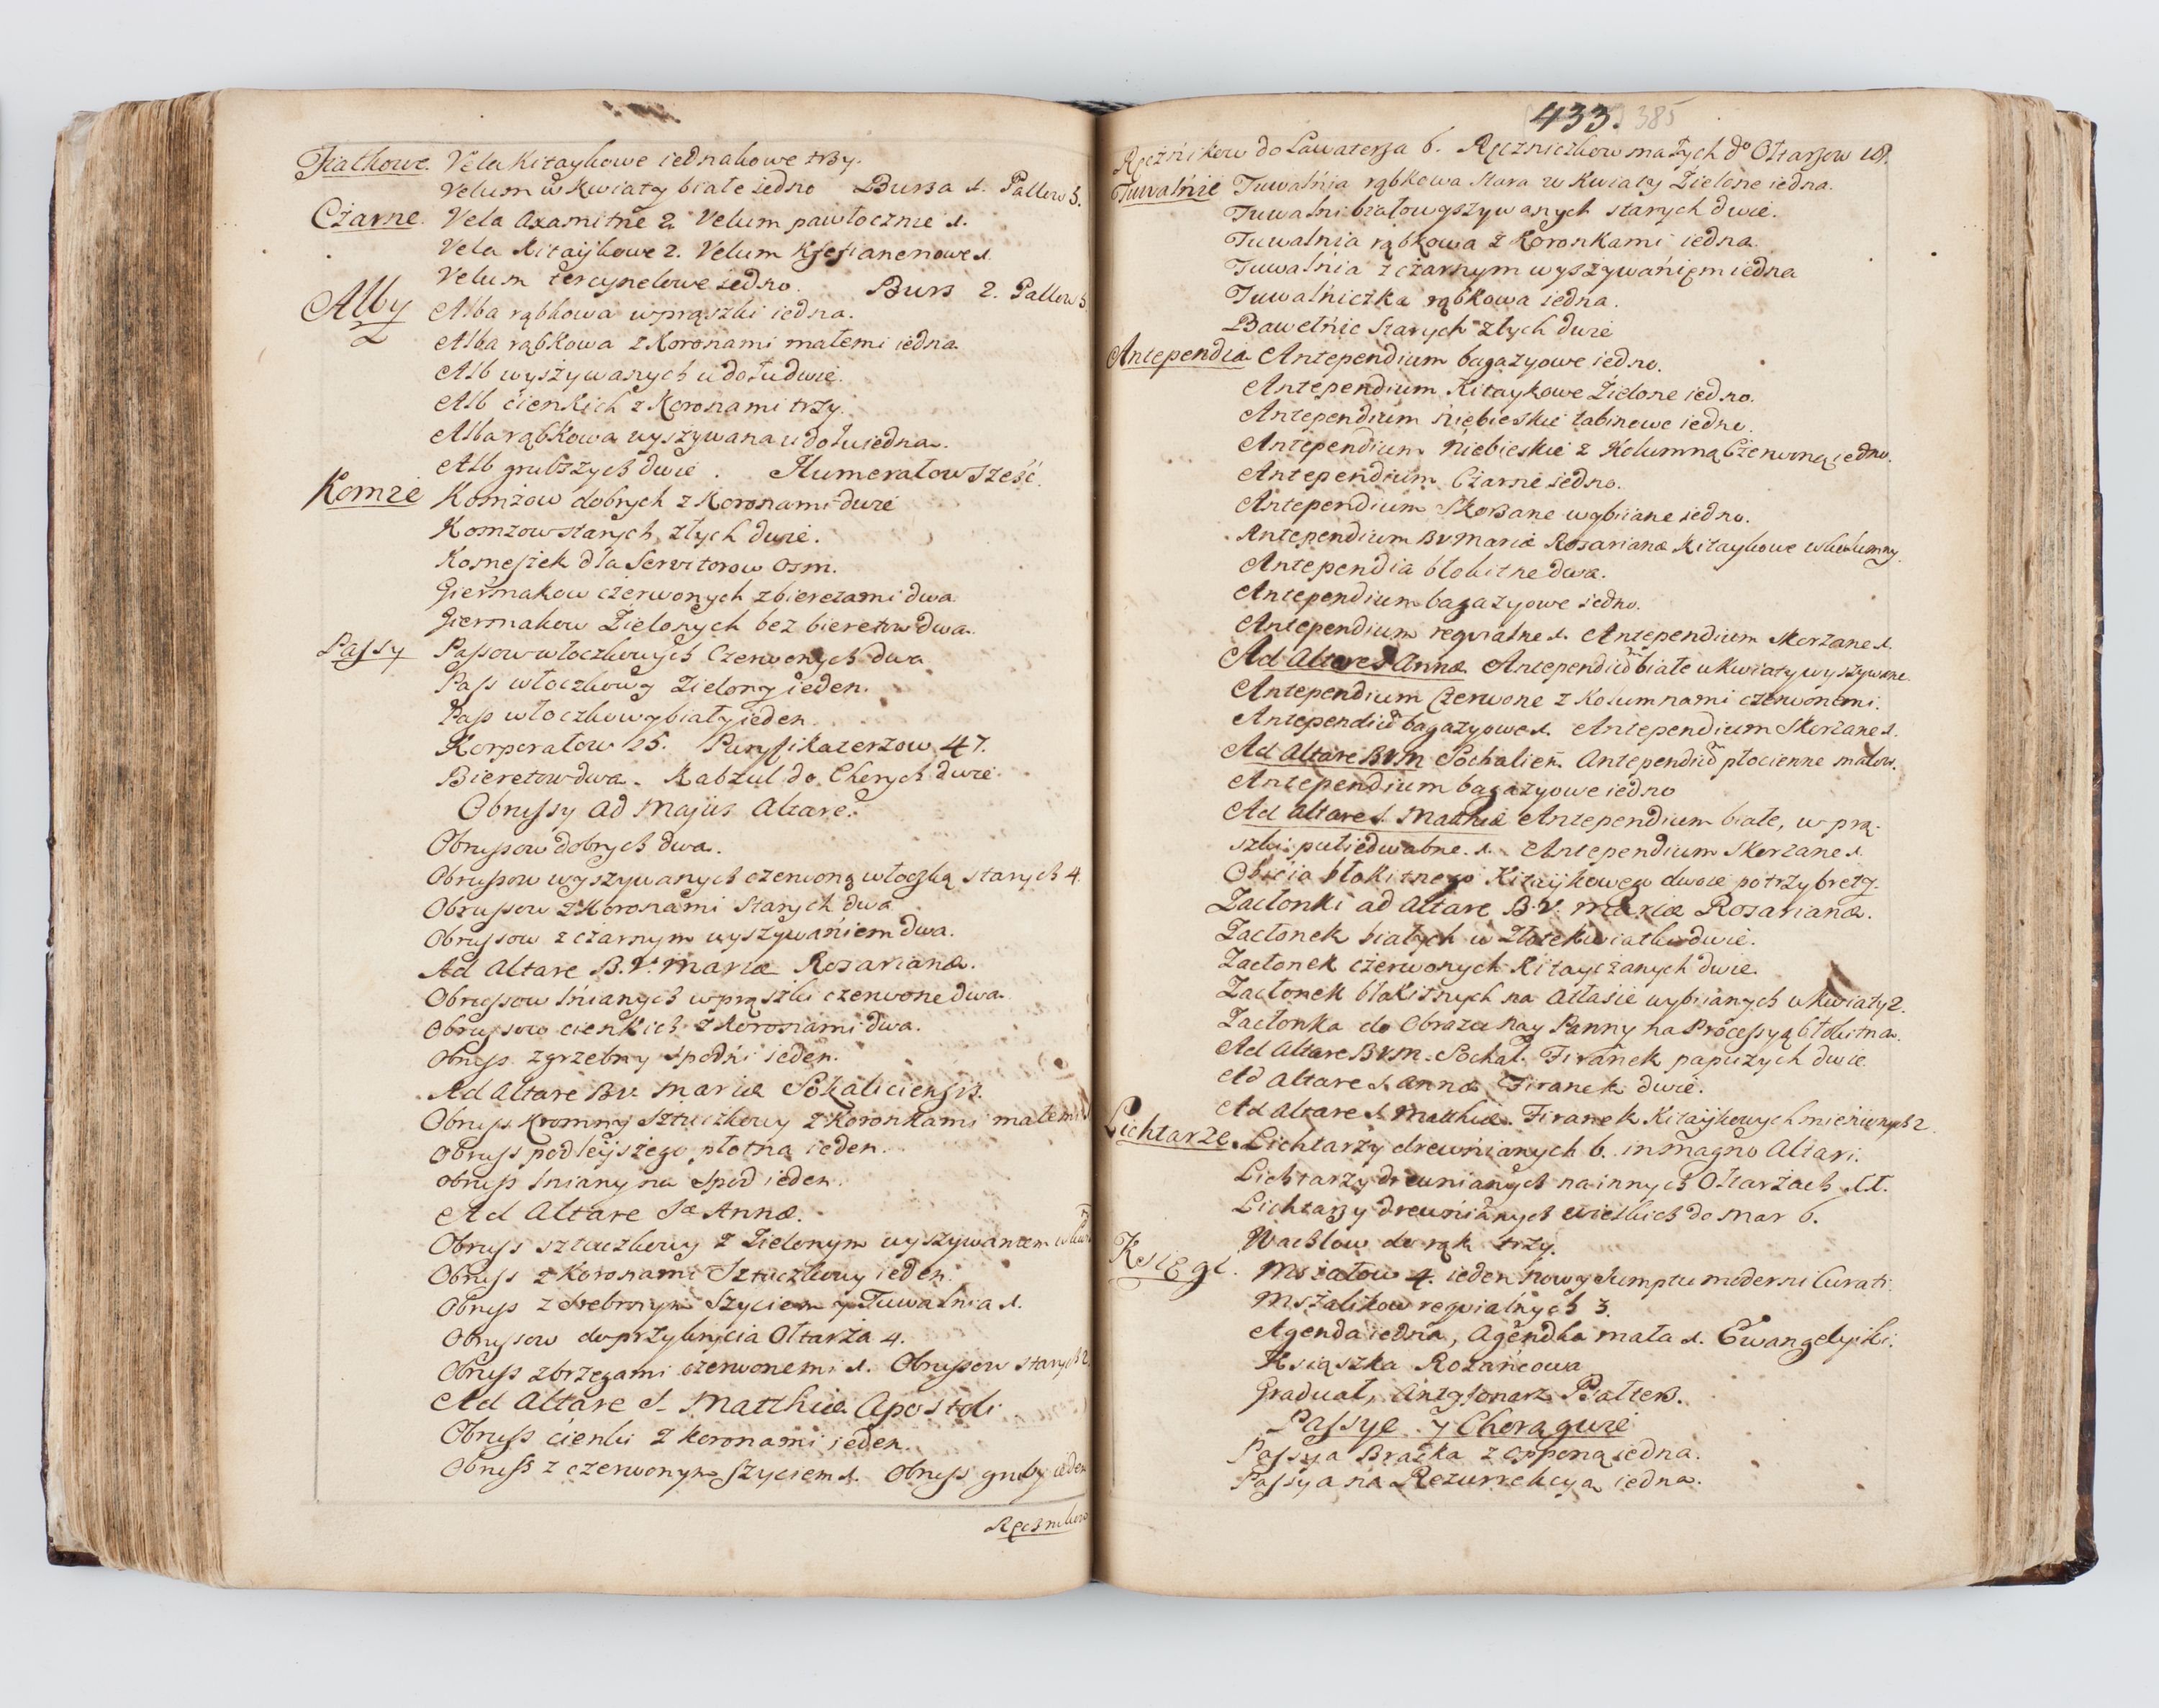 Fiałkowe. Vela Kitaykowe iednakowe trzy.
Velum w kwiaty białe iedno Bursa 1. Pallow 3.
Czarne. Vela Axamitne 2. Velum pawłocznie 1.
Vela Kitaÿkowe 2. Velum 1.
Velum tercynelowe iedno. Burs 2. Pallow 3
Alby Alba rąbkowa w prąszki iedna.
Alba rąbkowa z Koronami małemi iedna
Alb wyszywanych u dołu dwie.
Alb cienkich z Koronami trzy.
Alba rąbkowa wyszywana u dołu iedna.
Alb grubszych dwie. Humerałow sześć.
Komże Komżow dobrych z Koronami dwie
Komżow starych, złych dwie.
Komeszek dla Servitorow osm.
Giermakow czerwonych z bieretami dwa
Giermakow Zielonych bez bieretow dwa.
Passy Passow włoczkowych Czerwonych dwa
Pass włoczkowy Zielony ieden.
Pass włoczkowy biały ieden.
Korporałow 25. Puryfikaterzow 47.
Bieretow dwa. Kabzul do Chorych dwie.
Obrussy ad majus Altare.
Obrussow dobrych dwa.
Obrussow wyszywanych czerwoną włoczką starych 4.
Obrussow z Koronami starych dwa
Obrussow z czarnym wyszywaniem dwa.
Ad Altare B.V. Mariæ Rosarianæ.
Obrussow lnianych w prąszki czerwone dwa.
Obrussow cienkich z Koronami dwa.
Obruss zgrzebny spodni ieden.
Ad Altare B.V. Mariæ Sokaliciensis.
Obruss Kromny sztuczkowy z Koronkami małemi
Obruss podleyszego płotna ieden.
Obruss lniany na spod ieden.
Ad Altare Sæ Annæ.
Obruss sztuczkowy z Zielonym wyszywaniem
Obruss z Koronami Sztuczkowy ieden.
Obruss z srebrnym Szyciem y Tuwalnia 1.
Obrusow do przykrycia Ołtarza 4.
Obruss z brzegami czerwonemi 1. Obrussow starych 2.
Ad Altare S. Matthiæ Apostoli
Obruss cienki z koronami ieden.
Obruss z czerwonym szyciem 1. Obruss gruby ieden
Ręcznikow
433. 385
Ręcznikow do Lawaterza 6. Ręczniczkow małych do Ołtarzow 18.
Tuwalnie Tuwalnia rąbkowa stara w Kwiaty Zielone iedna.
Tuwalni biało wyszywanych starych dwie.
Tuwalnia rąbkowa z Koronkami iedna
Tuwalnia z czarnym wyszywaniem iedna
Tuwalniczka rąbkowa iedna.
Bawełnic starych złych dwie
Antependia Antependium bagazyowe iedno.
Antependium Kitaykowe Zielone iedno.
Antependium niebieskie tabinowe iedno.
Antependium Niebieskie z Kolumną Czerwoną iedno.
Antependium Czarne iedno.
Antependium Skorzane wybiiane iedno.
Antependium B V Mariæ Rosarianæ Kitaykowe w kolumny.
Antependia błokitne dwa.
Antependium bagazyowe iedno.
Antependium requialne 1. Antependium Skorzane 1.
Ad Altare S Annæ Antependiũ białe w kwiaty wyszywane.
Antependium Czerwone z Kolumnami czerwonemi.
Antependiũ bagazyowe 1. Antependium Skorzane 1.
Ad Altare BVM Sochalien. Antependiũ płocienne malow.
Antependium bagazyowe iedno
Ad Altare S. Matthiæ Antependium białe, w prą-
szki puliedwabne 1. Antependium Skorzane 1.
Obicia błokitnego Kitaykowego dwoie po trzy brety.
Zasłonki ad Altare B.V. Mariæ Rosarianæ.
Zasłonek białych w Złote kwiatki dwie.
Zasłonek czerwonych Kitayczanych dwie.
Zasłonek błokitnych na Atłasie wybiianych w kwiaty 2.
Zasłonka do Obrazu Nay Panny na Processyą błokitna.
Ad Altare BVM. Sochal. Firanek papużych dwie
Ad Altare S Annæ Firanek dwie.
Ad Altare S. Matthiæ. Firanek Kitaykowych mienionych 2.
Lichtarze. Lichtarzy drewnianych 6. in magno Altari.
Lichtarzy drewnianych na innych Ołtarzach 11.
Lichtarzy drewnianych wielkich do Mar 6.
Wachlow do rąk trzy.
Księgi. Mszałow 4. ieden nowy sumptu moderni Curati.
Mszalikow requialnych 3.
Agenda iedna, Agendka mała 1. Ewangelyiki.
Ksiąszka Rozańcowa
Graduał, Antyfonarz Psałterz.
Passye y Chorągwie
Passya Bracka z opponą iedna.
Passya na Rezurrekcyą iedna.